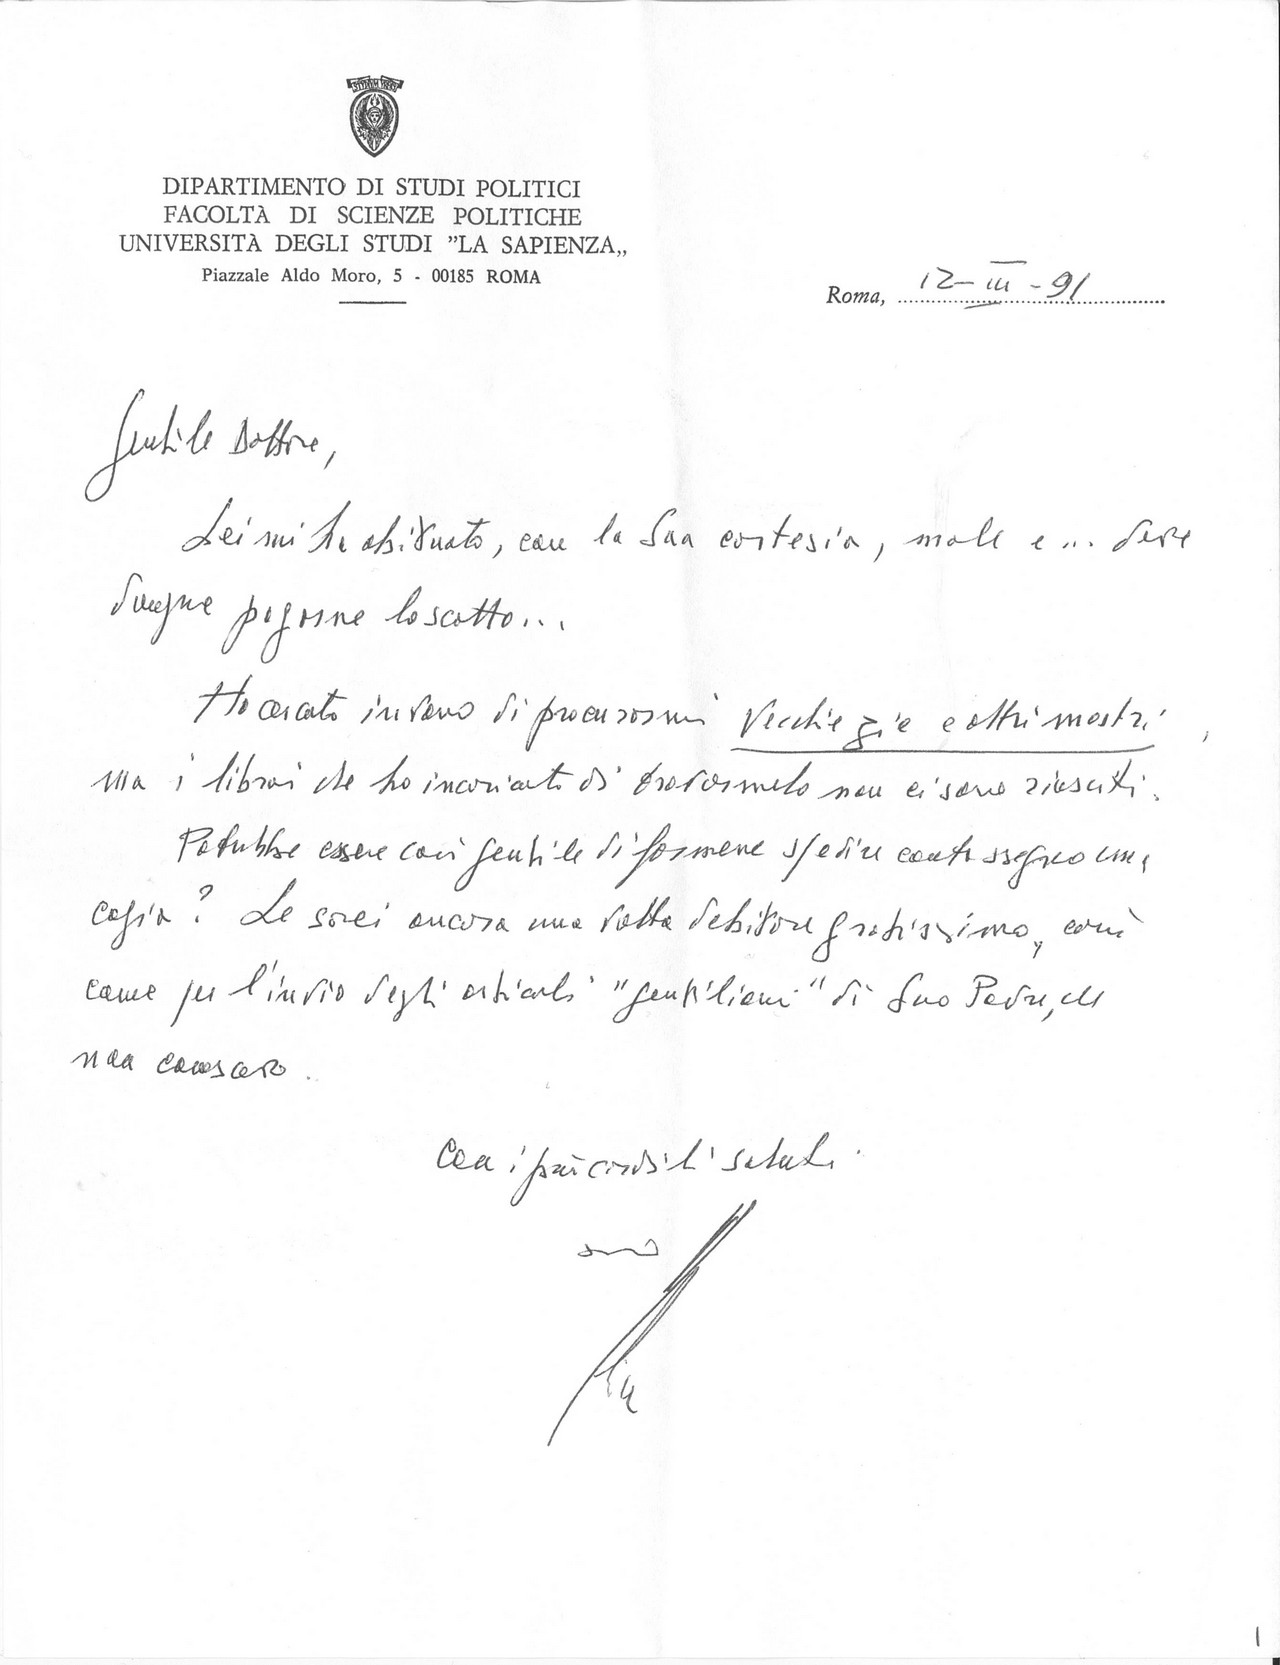 DIPARTIMENTO DI STUDI POLITICI
FACOLTÀ DI SCIENZE POLITICHE
UNIVERSITÀ DEGLI STUDI "LA SAPIENZA„
Piazzale Aldo Moro, 5 - 00185 ROMA
Roma, 12-III-91
Gentile Dottore,
Lei mi ha abituato, con la Sua cortesia, male e ... deve
dunque pagarne lo scotto...
Ho cercato invano di procurarmi Vecchie zie e altri mostri,
ma i librai che ho incaricato di trovarmelo non ci sono riusciti.
Potrebbe essere così gentile di farmene spedire contrassegno una
copia? Le sarei ancora una volta debitore gratissimo, così
come per l'invio degli articoli "gentiliani" di Suo Padre, che
non conoscevo.
Con i più cordiali saluti.
suo
1